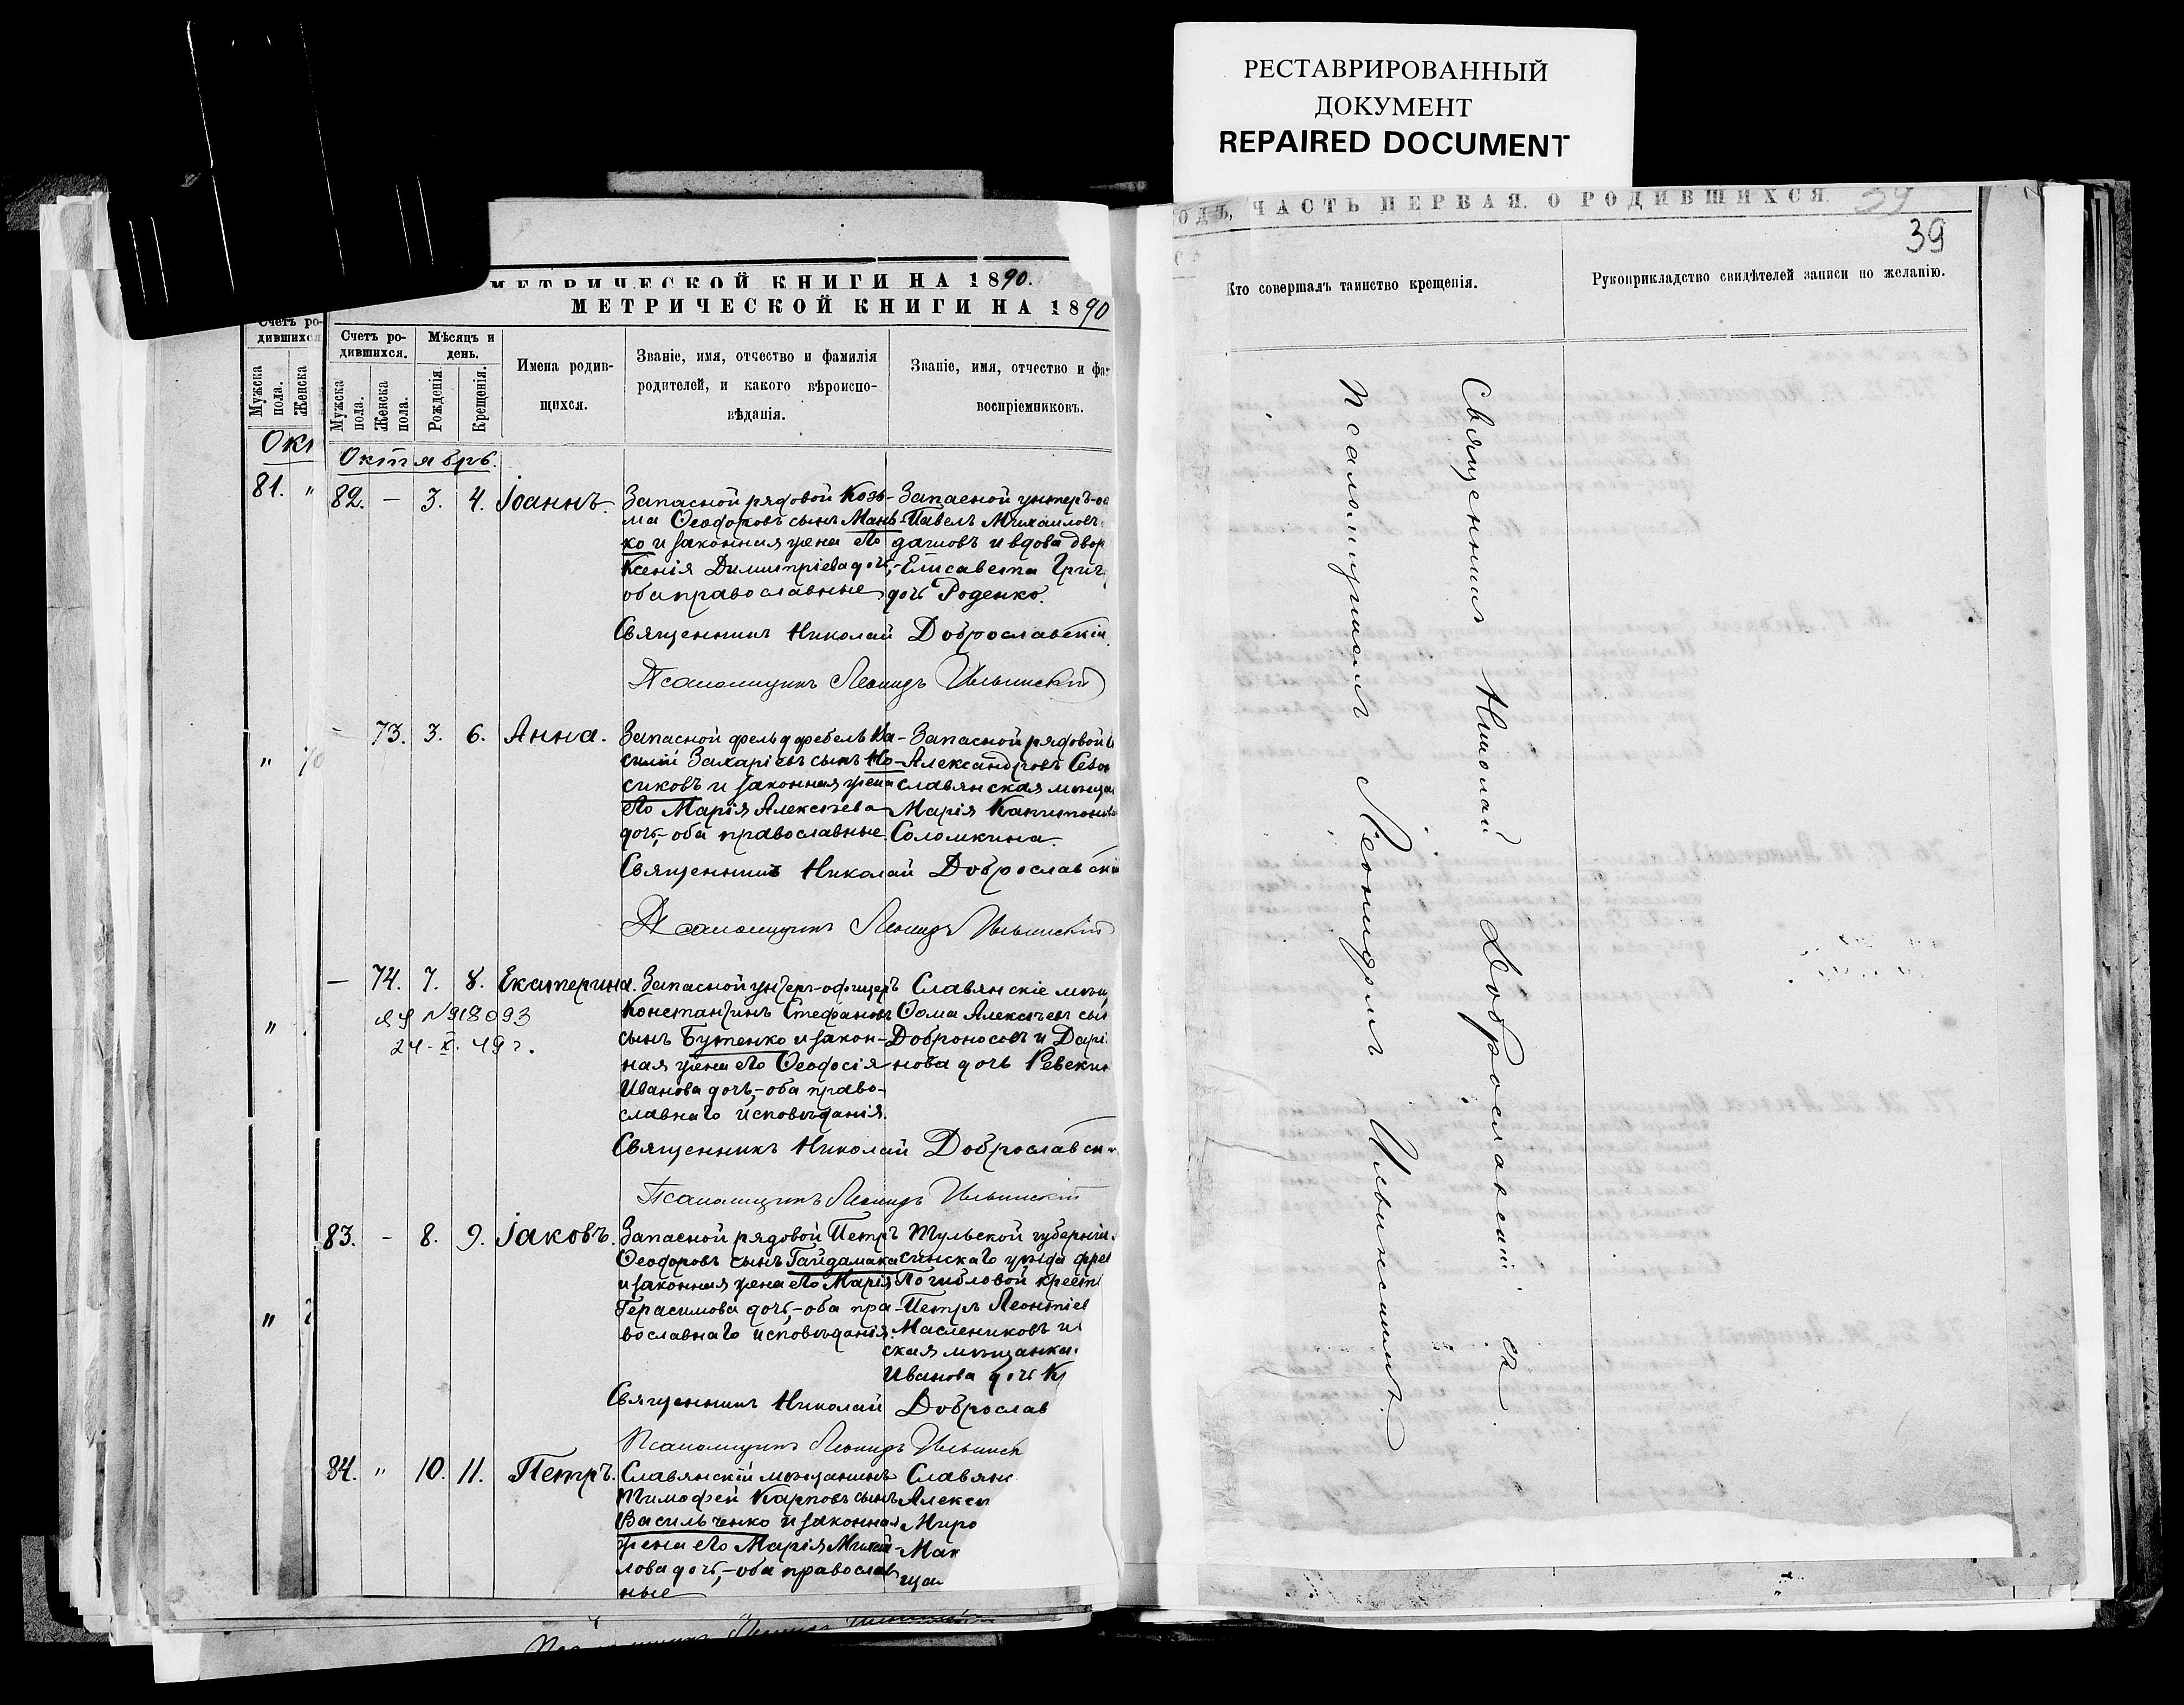 РЕСТАВРИРОВАННЫЙ
ДОКУМЕНТ
REPAIRED DOCUMENT
МЕТРИЧЕСКОЙ КНИГИ НА 1890.
МЕТРИЧЕСКОЙ КНИГИ НА 1890
Счетъ ро-
дившихся
Мужска
пола.
Женска
Окт
81. "
"
"
"
Счетъ ро-
дившихся.
Мѣсяцъ и
день.
Мужска
пола.
Женска
пола.
Рожденія
Крещенія.
Имена родив-
щихся.
Званіе, имя, отчество и фамилія
родителей, и какого вѣроиспо-
вѣданія.
Званіе, имя, отчество и фа
воспріемниковъ.
Октябрь.
82. – 3. 4. Іоаннъ.
Запасной рядовой Козь-
ма Ѳеодоровъ сынъ Мань-
ко и законная жена его
Ксенія Димитріева дочь,-
оба православные
Запасной унтеръ-о
Павелъ Михаиловъ
дашовъ и вдова двор
Елисавета Григ
дочь Роденко.
Священникъ Николай Доброславскій.
Псаломщикъ Леонидъ Ильинскій
– 73. 3. 6. Анна.
Запасной фельдфебель Ва-
силій Захаріевъ сынъ Но-
сиковъ и законная жена
его Марія Алексѣева
дочь,-оба православные.
Запасной рядовой
Александровъ
славянская мѣща
Марія Капитонова
Соломкина.
Священникъ Николай Доброславскі
Псаломщикъ Леонидъ Ильинскій
– 74. 7. 8. Екатерина.
ЯЯ №918093
24-X. 49г.
Запасной унтеръ-офицеръ
Константинъ Стефановъ
сынъ Бутенко и закон-
ная жена его Ѳеодосія
Иванова дочь,-оба право-
славнаго исповѣданія.
Славянскіе мѣщ
Ѳома Алексѣевъ сын
Доброносовъ и Дарі
нова дочь Ревекин
Священникъ Николай Доброславск
Псаломщикъ Леонидъ Ильинскій
83. – 8. 9. Іаковъ.
Запасной рядовой Петръ
Ѳеодоровъ сынъ Гайдамака
и законная жена его Марія
Герасимова дочь,-оба пра-
вославнаго исповѣданія.
Тульской губерніи
синскаго уѣзда
Погибловой крест
Петръ Леонтіев
Маслениковъ и
ская мѣщанка
Иванова дочь К
Священникъ Николай Доброслав
Псаломщикъ Леонидъ Ильинск
84. " 10. 11. Петръ.
Славянскій мѣщанинъ
Тимофей Карповъ сынъ
Васильченко и законная
жена его Марія Михаи-
лова дочь,-оба православ
ные
Славян
Алекс
Миро
Мак
щан
ОДЪ, ЧАСТЬ ПЕРВАЯ. О РОДИВШИХСЯ. 39
39
Кто совершалъ таинство крещенія.
Рукоприкладство свидѣтелей записи по желанію.
Священник Николай Доброславскій с
Псаломщикомъ Леонидомъ Ильинскимъ.